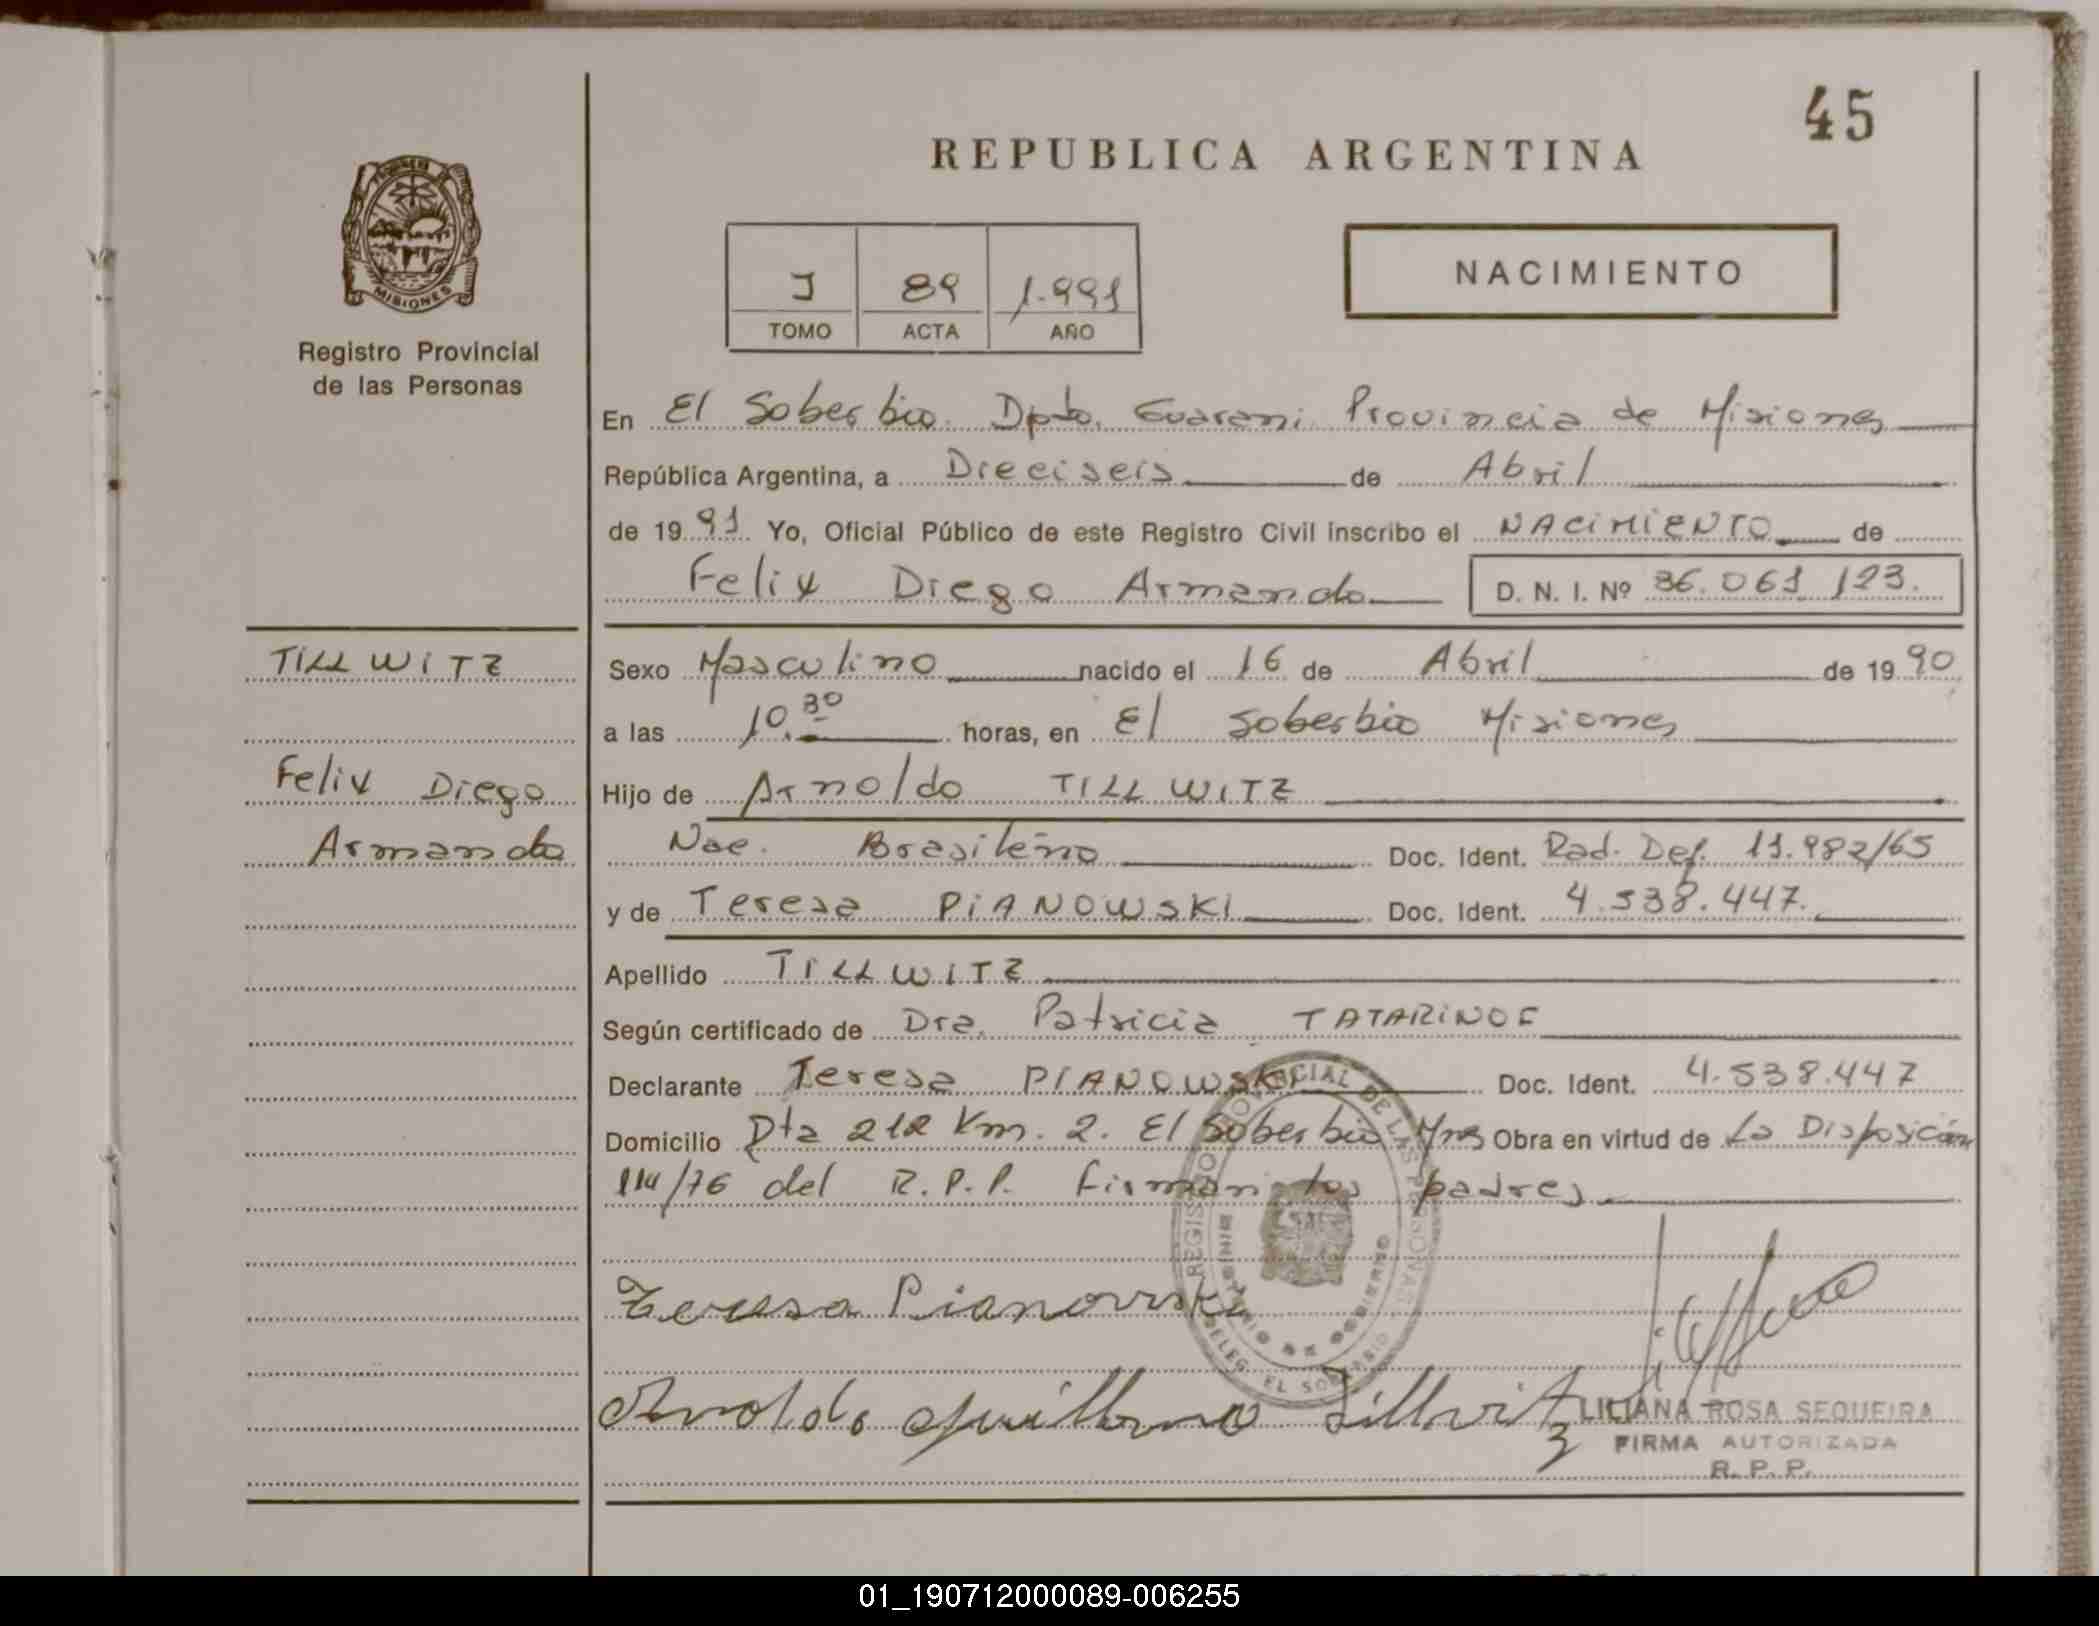 45
REPUBLICA ARGENTINA
MISIONES
Registro Provincial
de las Personas
I 89 1.991
TOMO ACTA AÑO
NACIMIENTO
En El Soberbio. Dpto. Guarani Provincia de Misiones
República Argentina, a Dieciseis de Abril
de 1991 Yo, Oficial Público de este Registro Civil inscribo el NACIMIENTO de
Felix Diego Armando D. N. I. Nº 36.061 123.
TILLWITZ
Felix Diego
Armando
Sexo Masculino nacido el 16 de Abril de 1990
a las 10.30 horas, en El Soberbio Misiones
Hijo de Arnoldo TILLWITZ
Nac. Brasileño Doc. Ident. Rad. Def. 11.982/65
y de Teresa PIANOWSKI Doc. Ident. 4.538.447.
Apellido TILLWITZ
Según certificado de Dra. Patricia TATARINOF
Declarante Teresa PIANOWSKI Doc. Ident. 4.538.447
Domicilio Dta 212 Km. 2. El Soberbio Mnes Obra en virtud de La Disposición
114/76 del R.P.P. Firman los padres
REGISTRO PROVINCIAL DE LAS PERSONAS
MINISTERIO DE GOBIERNO
DELEG. EL SOBERBIO
Teresa Pianovski
Arnoldo Guillermo Tillvitz
LILIANA ROSA SEQUEIRA
FIRMA AUTORIZADA
R. P. P.
01_190712000089-006255